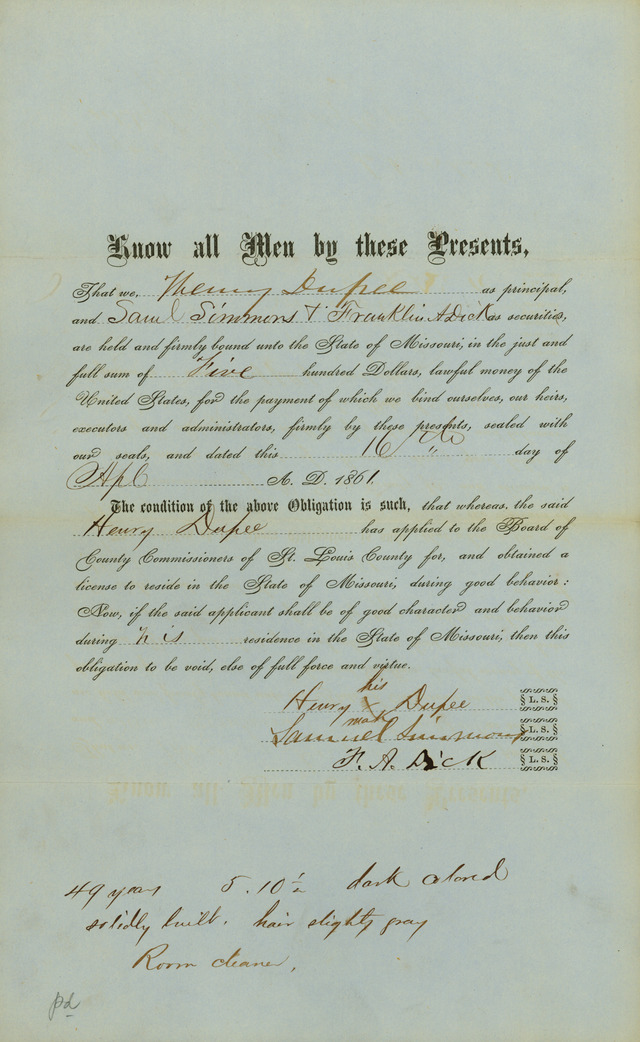 Know all Men by these Presents,
That we, Henry Dupee as principal,
and Saml Simmons & Franklin A Dick as securities,
are held and firmly bound unto the State of Missouri, in the just and
full sum of Five hundred Dollars, lawful money of the
United States, for the payment of which we bind ourselves, our heirs,
executors and administrators, firmly by these presents, sealed with
our seals, and dated this 16 day of
Apl A. D. 1861.
The condition of the above Obligation is such, that whereas, the said
Henry Dupee has applied to the Board of
County Commissioners of St. Louis County for, and obtained a
license to reside in the State of Missouri, during good behavior:
Now, if the said applicant shall be of good character and behavior
during his residence in the State of Missouri, then this
obligation to be void, else of full force and virtue.
his
Henry X Dupee L. S.
mark
Samuel Simmons L. S.
F. A. Dick L. S.
49 years 5.10½ dark colored
solidly built. hair slightly gray
Room cleaner.
pd